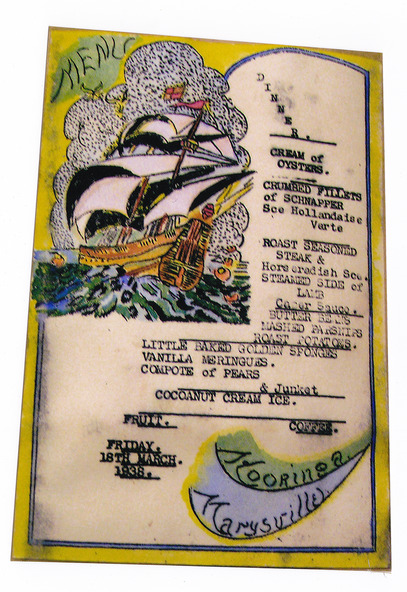 MENU
DINNER.
CREAM of
OYSTERS.
CRUMBED FILLETS
of SCHNAPPER
Sce Hollandaise
Verte
ROAST SEASONED
STEAK &
Horseradish Sce.
STEAMED SIDE of
LAMB
Caper Sauce.
BUTTER BEANS
MASHED PARSNIPS
ROAST POTATOES.
LITTLE BAKED GOLDEN SPONGES
VANILLA MERINGUES.
COMPOTE of PEARS
& Junket
COCOANUT CREAM ICE.
FRUIT.
COFFEE.
FRIDAY.
18TH MARCH.
1938.
Mooringa.
Marysville.